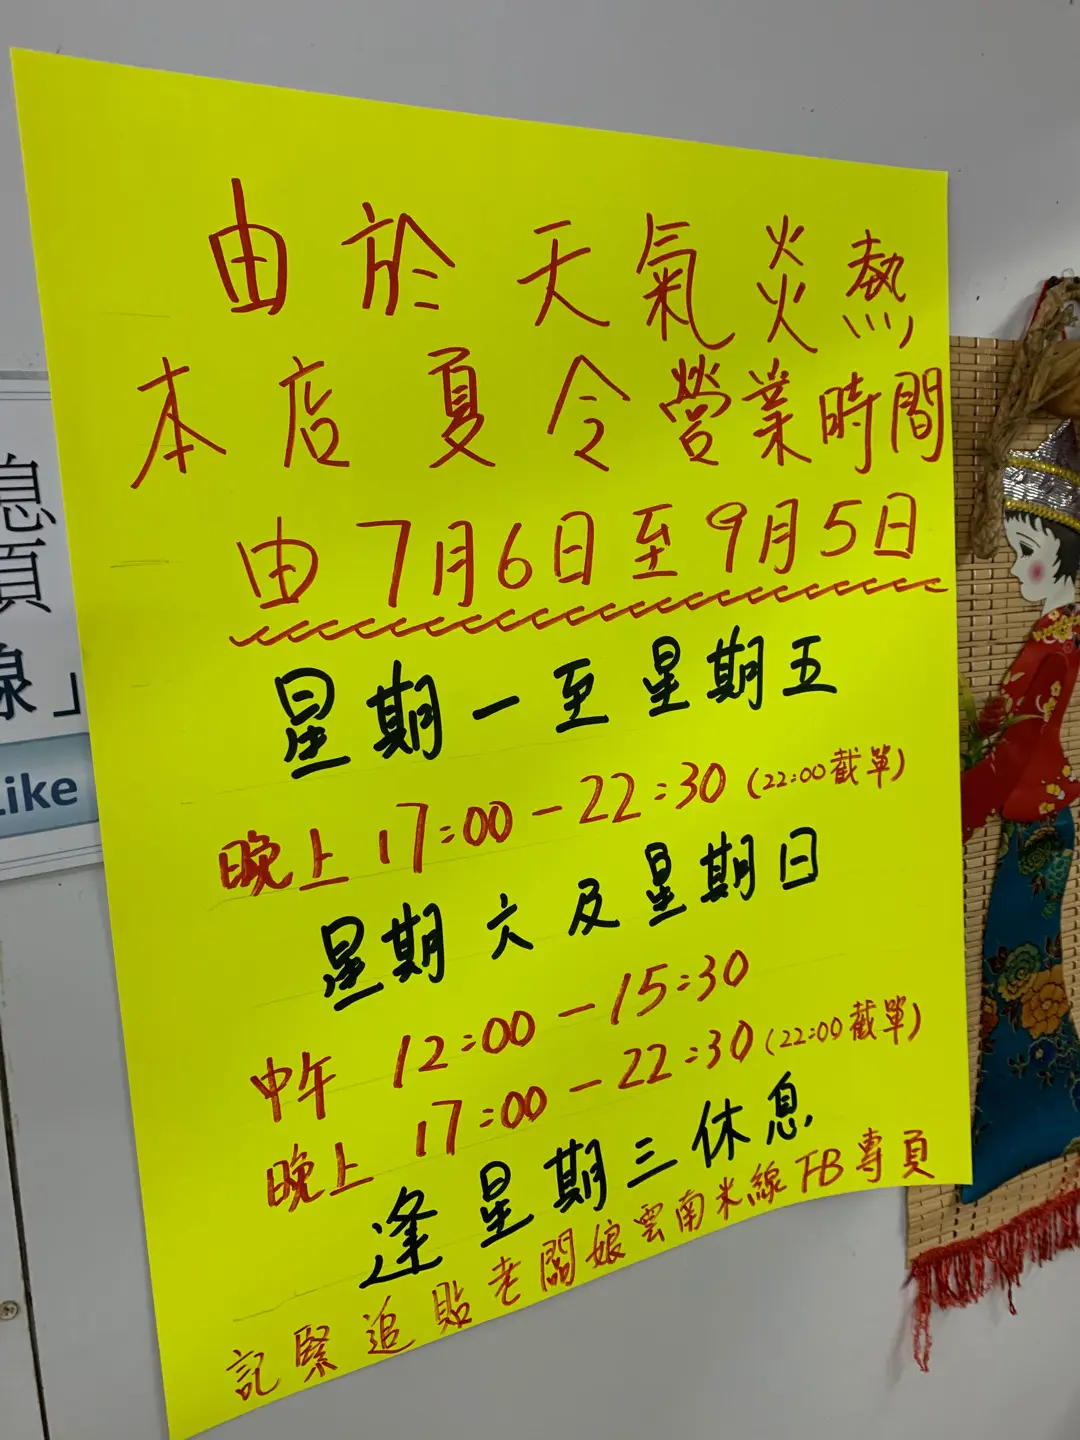 由於天氣炎熱
本店夏令營業時間
由7月6日至9月5日
星期一至星期五
晚上 17:00-22:30 (22:00截單)
星期六及星期日
中午 12:00-15:30
晚上 17:00-22:30 (22:00截單)
逢星期三休息
記緊追貼老闆娘雲南米線FB專頁
息
頁
線」
Like